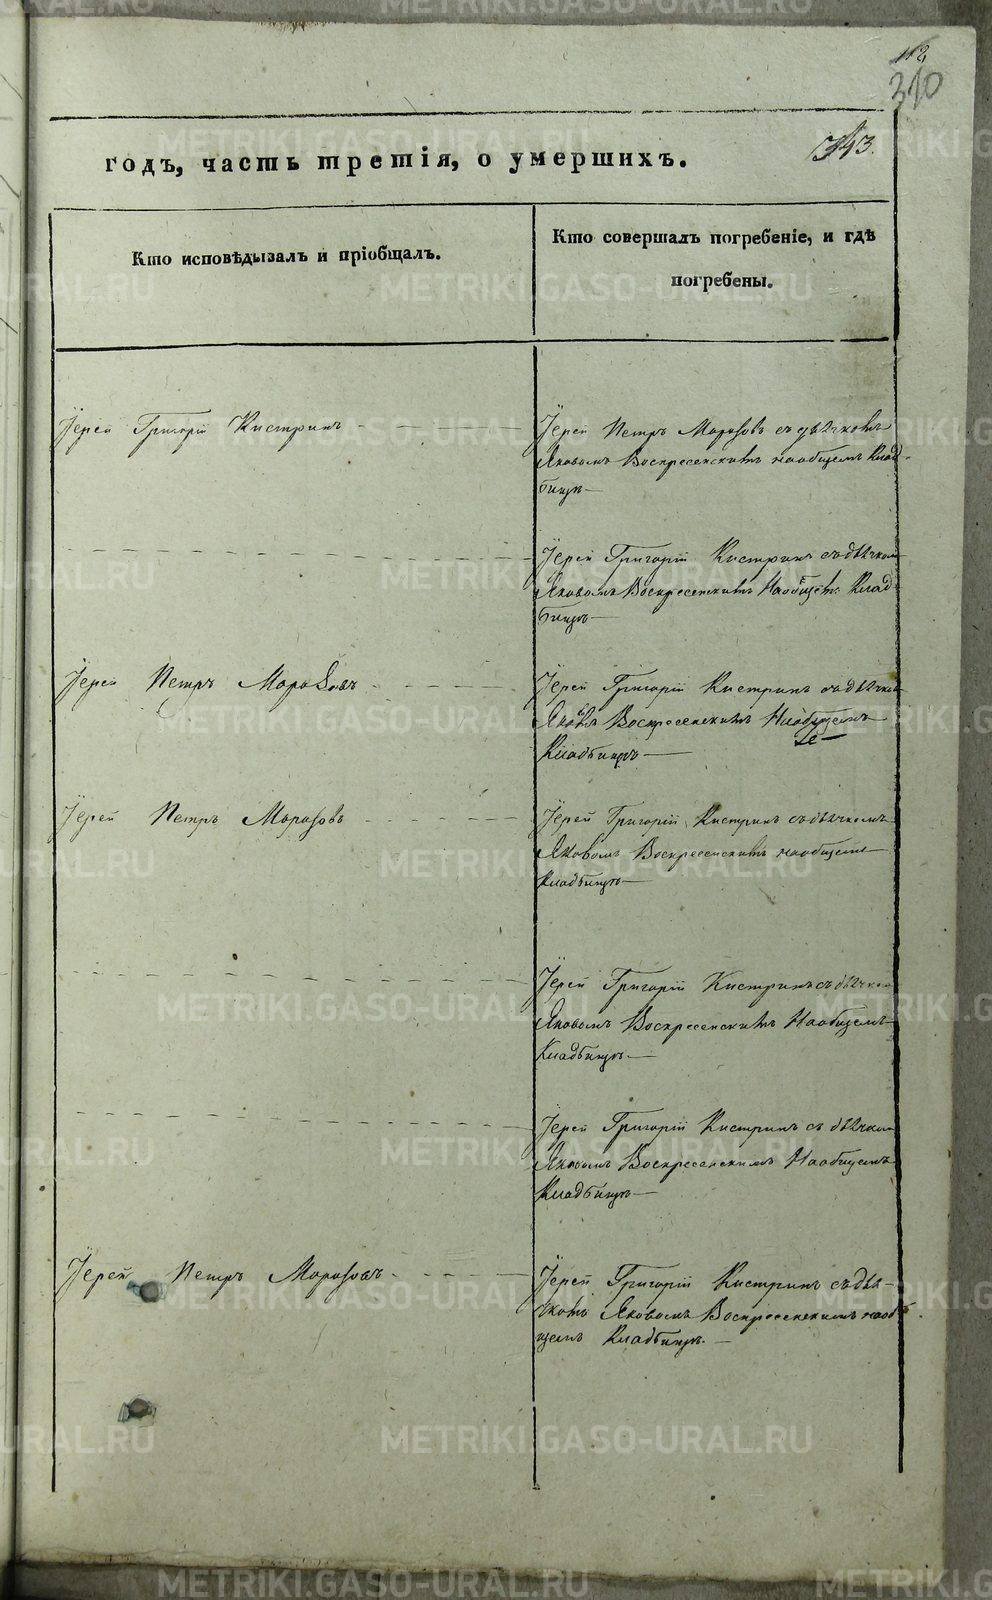 112
310
343.
годъ, часть третія, о умершихъ.
Кто исповѣдывалъ и пріобщалъ.
Кто совершалъ погребеніе, и гдѣ
погребены.
Іерей Григорій Кистринъ
Іерей Петръ Морозовъ съ дьячкомъ
Яковомъ Воскресенскимъ наобщемъ Клад-
бищѣ
Іерей Григорій Кистринъ съ дьячком
Яковомъ Воскресенскимъ Наобщем. Клад-
бищѣ
Іерей Петръ Морозовъ
Іерей Григорій Кистринъ съ дьячком
Воскресенскимъ Наобщемъ
Кладбищѣ
Іерей Петръ Морозовъ
Іерей Григорій Кистринъ съ дьячкомъ
Яковомъ Воскресенскимъ наобщемъ
Кладбищѣ
Іерей Григорій Кистринъ съ дьячком
Яковомъ Воскресенскимъ Наобщемъ
Кладбищѣ
Іерей Григорій Кистринъ съ дьячком
Яковомъ Воскресенскимъ Наобщемъ
Кладбищѣ
Іерей Петръ Морозовъ
Іерей Григорій Кистринъ съ дья-
чкомъ Яковомъ Воскресенскимъ наоб
щемъ Кладбищѣ.
METRIKI.GASO-URAL.RU